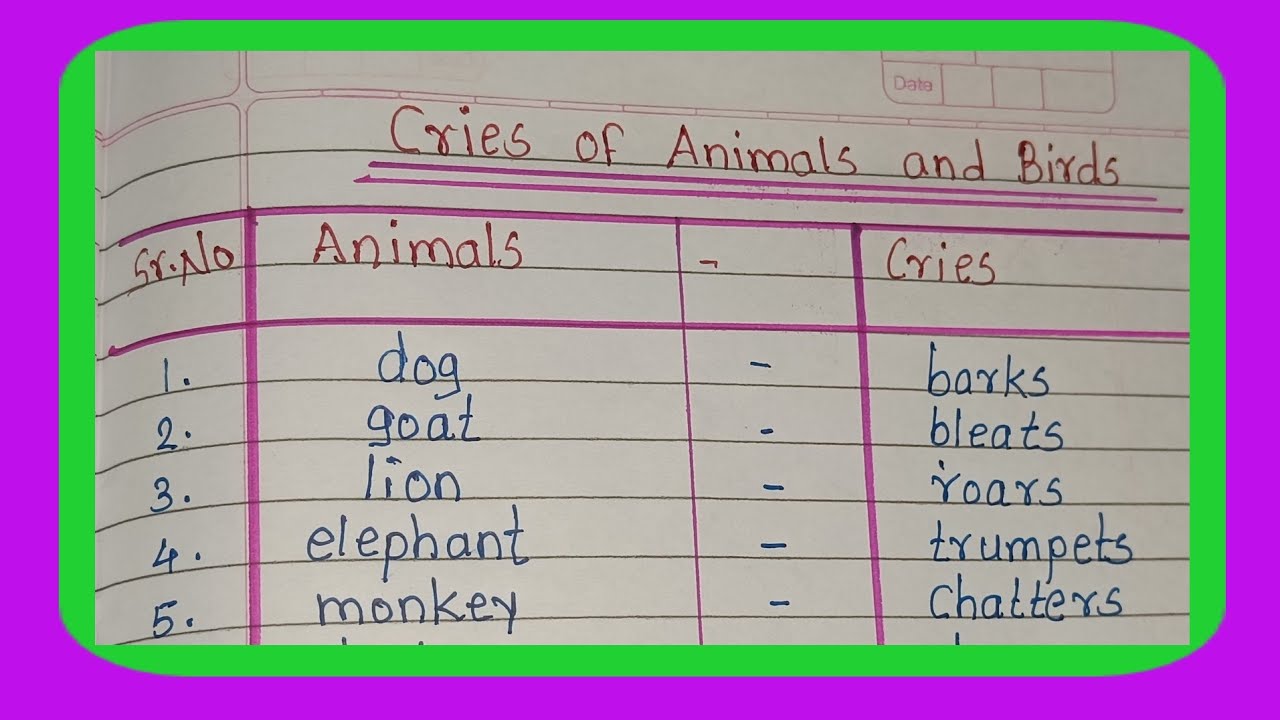 Date
Cries of Animals and Birds
Sr.No Animals - Cries
1. dog - barks
2. goat - bleats
3. lion - roars
4. elephant - trumpets
5. monkey - Chatters